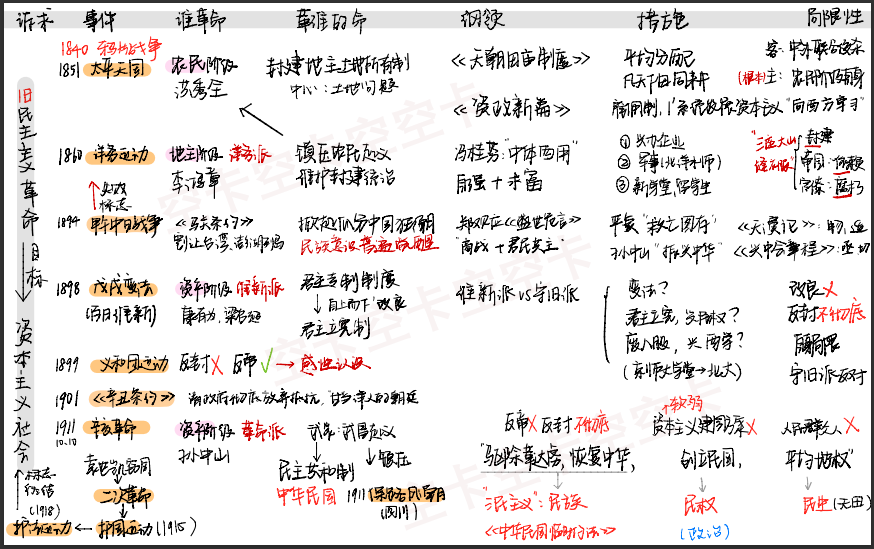 诉求 事件 谁革命 革谁的命 纲领 措施 局限性
1840 鸦片战争
1851 太平天国 农民阶级 封建地主土地所有制 《天朝田亩制度》 平均分历记 客:中外联合绞杀
洪秀全 中心:土地问题 凡天下田同耕 (根本)主:农民阶级自身
《资政新篇》 雇佣制,1系统发展资本主义 "向西方学习"
旧民主主义革命
1860 洋务运动 地主阶级 洋务派 镇压农民起义 冯桂芬:"中体西用" ①兴办企业 "三座大山 封建
李鸿章 维护封建统治 自强+求富 ②军事(北洋水师) 帝国:依赖
③新学堂,留学生 官僚:腐朽
失败标志
1894 甲午中日战争 《马关条约》 掀起瓜分中国狂潮 郑观应《盛世危言》 严复"救亡图存" 《天演论》:物竞
割让台湾,澎湖 民族意识普遍觉醒 "商战+君民共主" 孙中山"振兴中华" 《兴中会章程》:
目标
1898 戊戌变法 资产阶级 维新派 君主专制制度 维新派vs守旧派 变法? 改良X
(百日维新) 康有为,梁启超 自上而下 改良 君主立宪,兴民权? 反封不彻底
君主立宪制 废八股,兴西学? 局限
(京师大学堂→北大) 守旧派反对
资本主义社会
1899 义和团运动 反封X 反帝√ → 感性认识
1901 《辛丑条约》 清政府彻底放弃抵抗,
软弱
1911 辛亥革命 资产阶级 革命派 武昌起义 反帝X 反封不彻底 资本主义建国方案X 人民群众X
10.10 孙中山 镇压
袁世凯 民主共和制 "驱除鞑虏,恢复中华, 创立民国, 平均地权"
标志终结(1918) 二次革命 中华民国 1911保路运动(四川) "三民主义":民族 民权 民生
护法运动 ← 护国运动(1915) 《中华民国临时约法》 (政治)
空卡空卡空卡